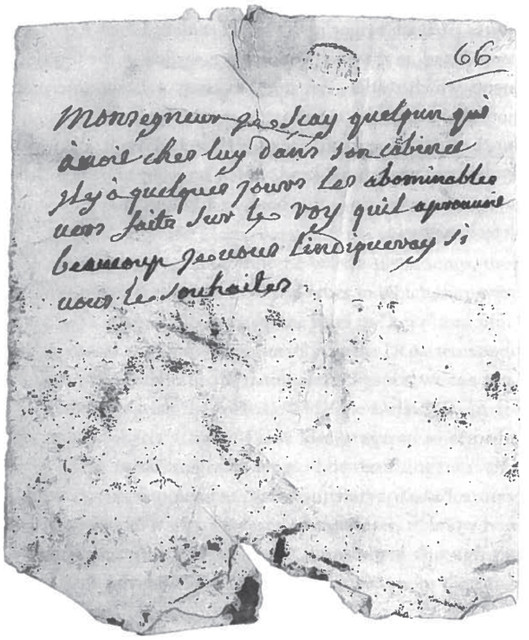 66
Monseigneur Je scay quelqun qui
avoit ches luy dans son cabinet
Il y a quelques jours les abominables
vers faits sur le roy quil aprouvoit
beaucoup Je vous l'indiqueray si
vous le souhaites